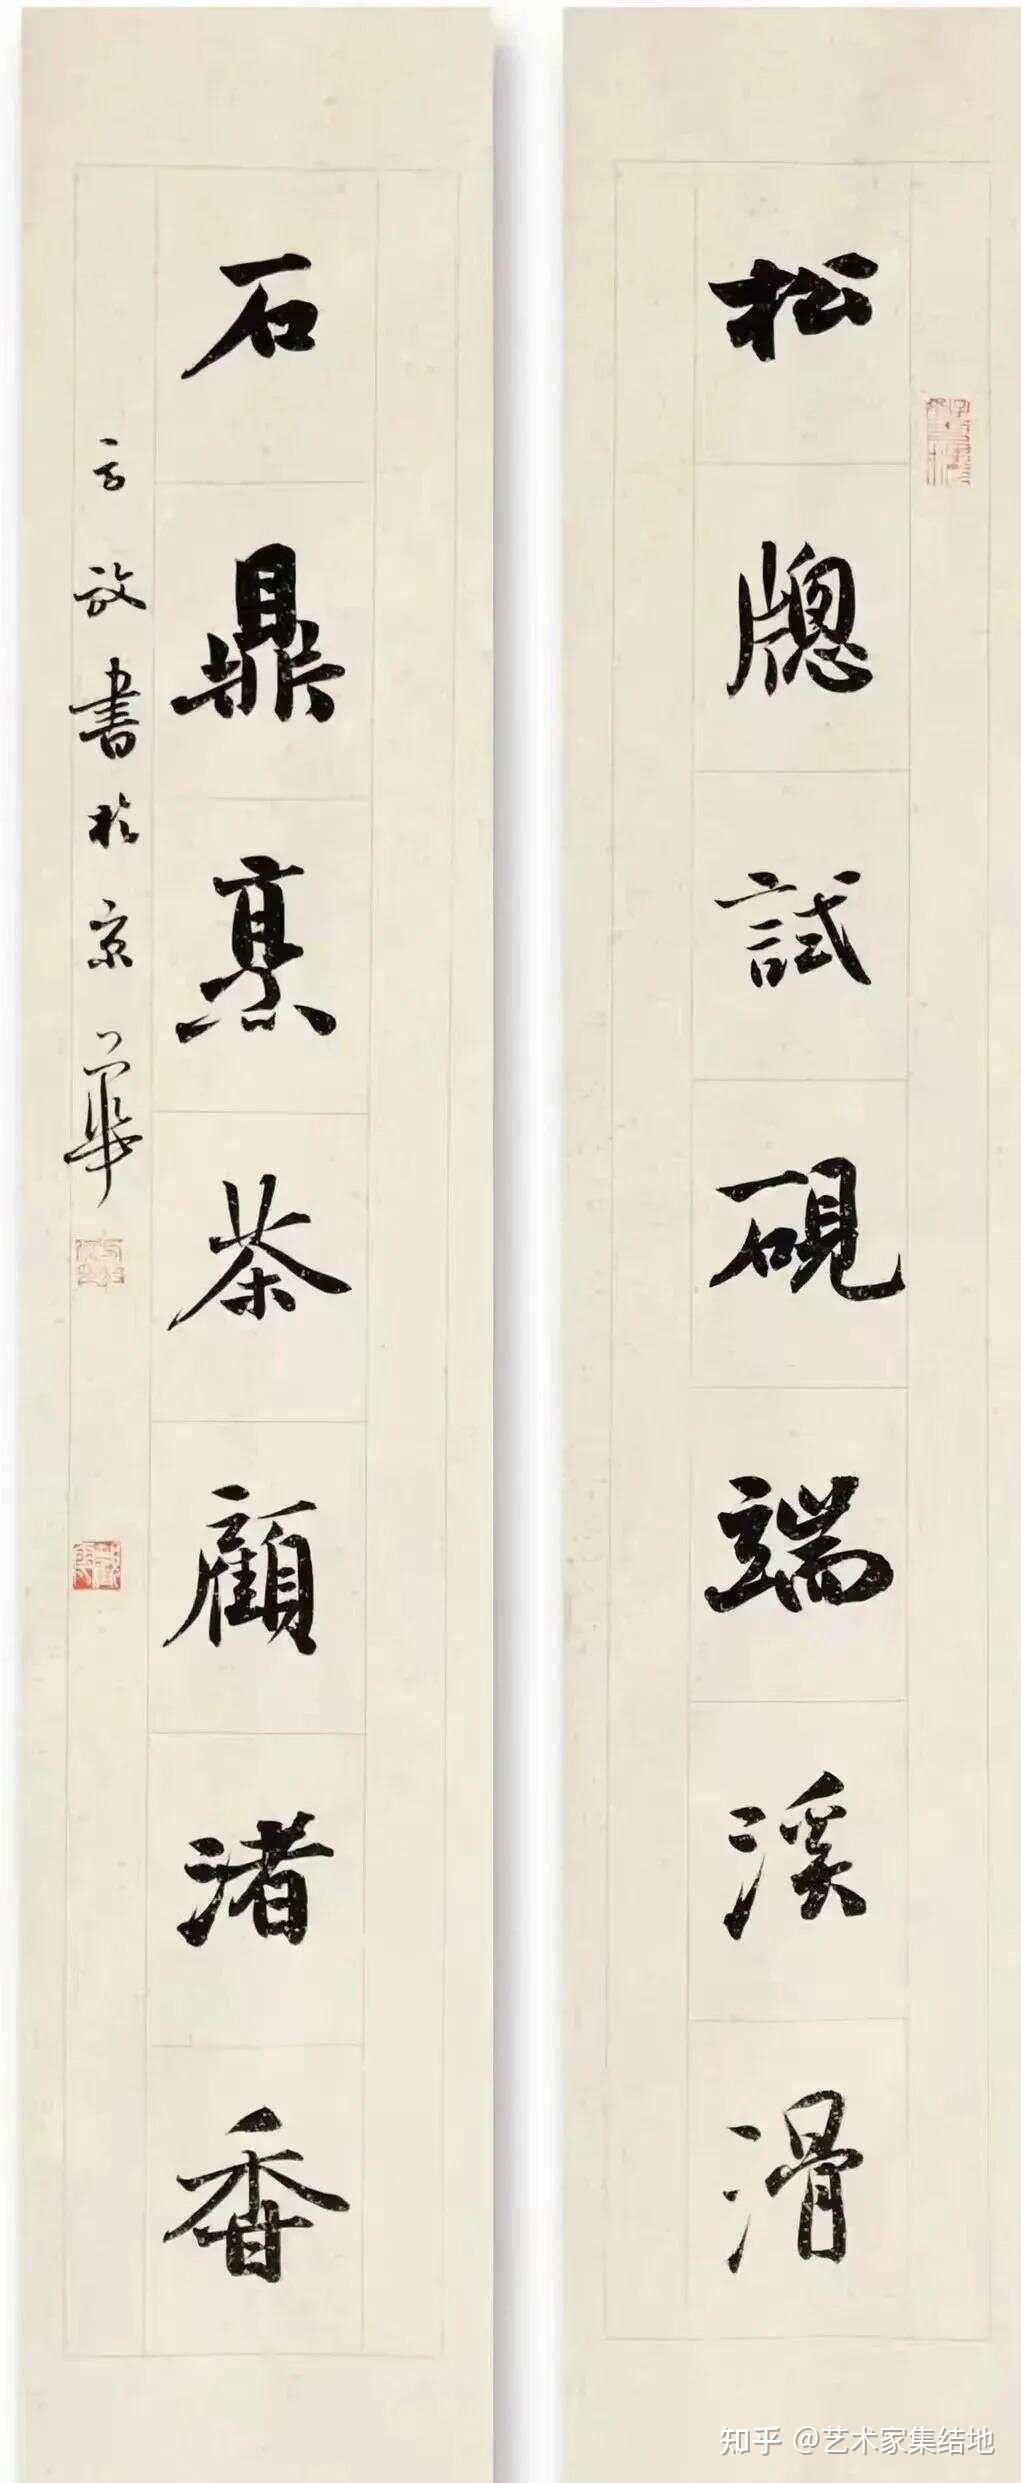 松牕試硯端溪滑
石鼎烹茶顧渚香
方放書於京華
知乎 @艺术家集结地